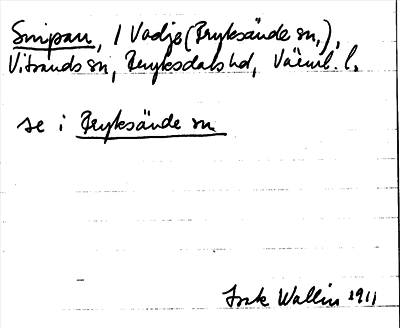 Snipan, / Vadje (Fryksände sn.),
Vitsands sn, Fryksdals hd, Värml. l.
se i Fryksände sn
Isak Wallin 1911